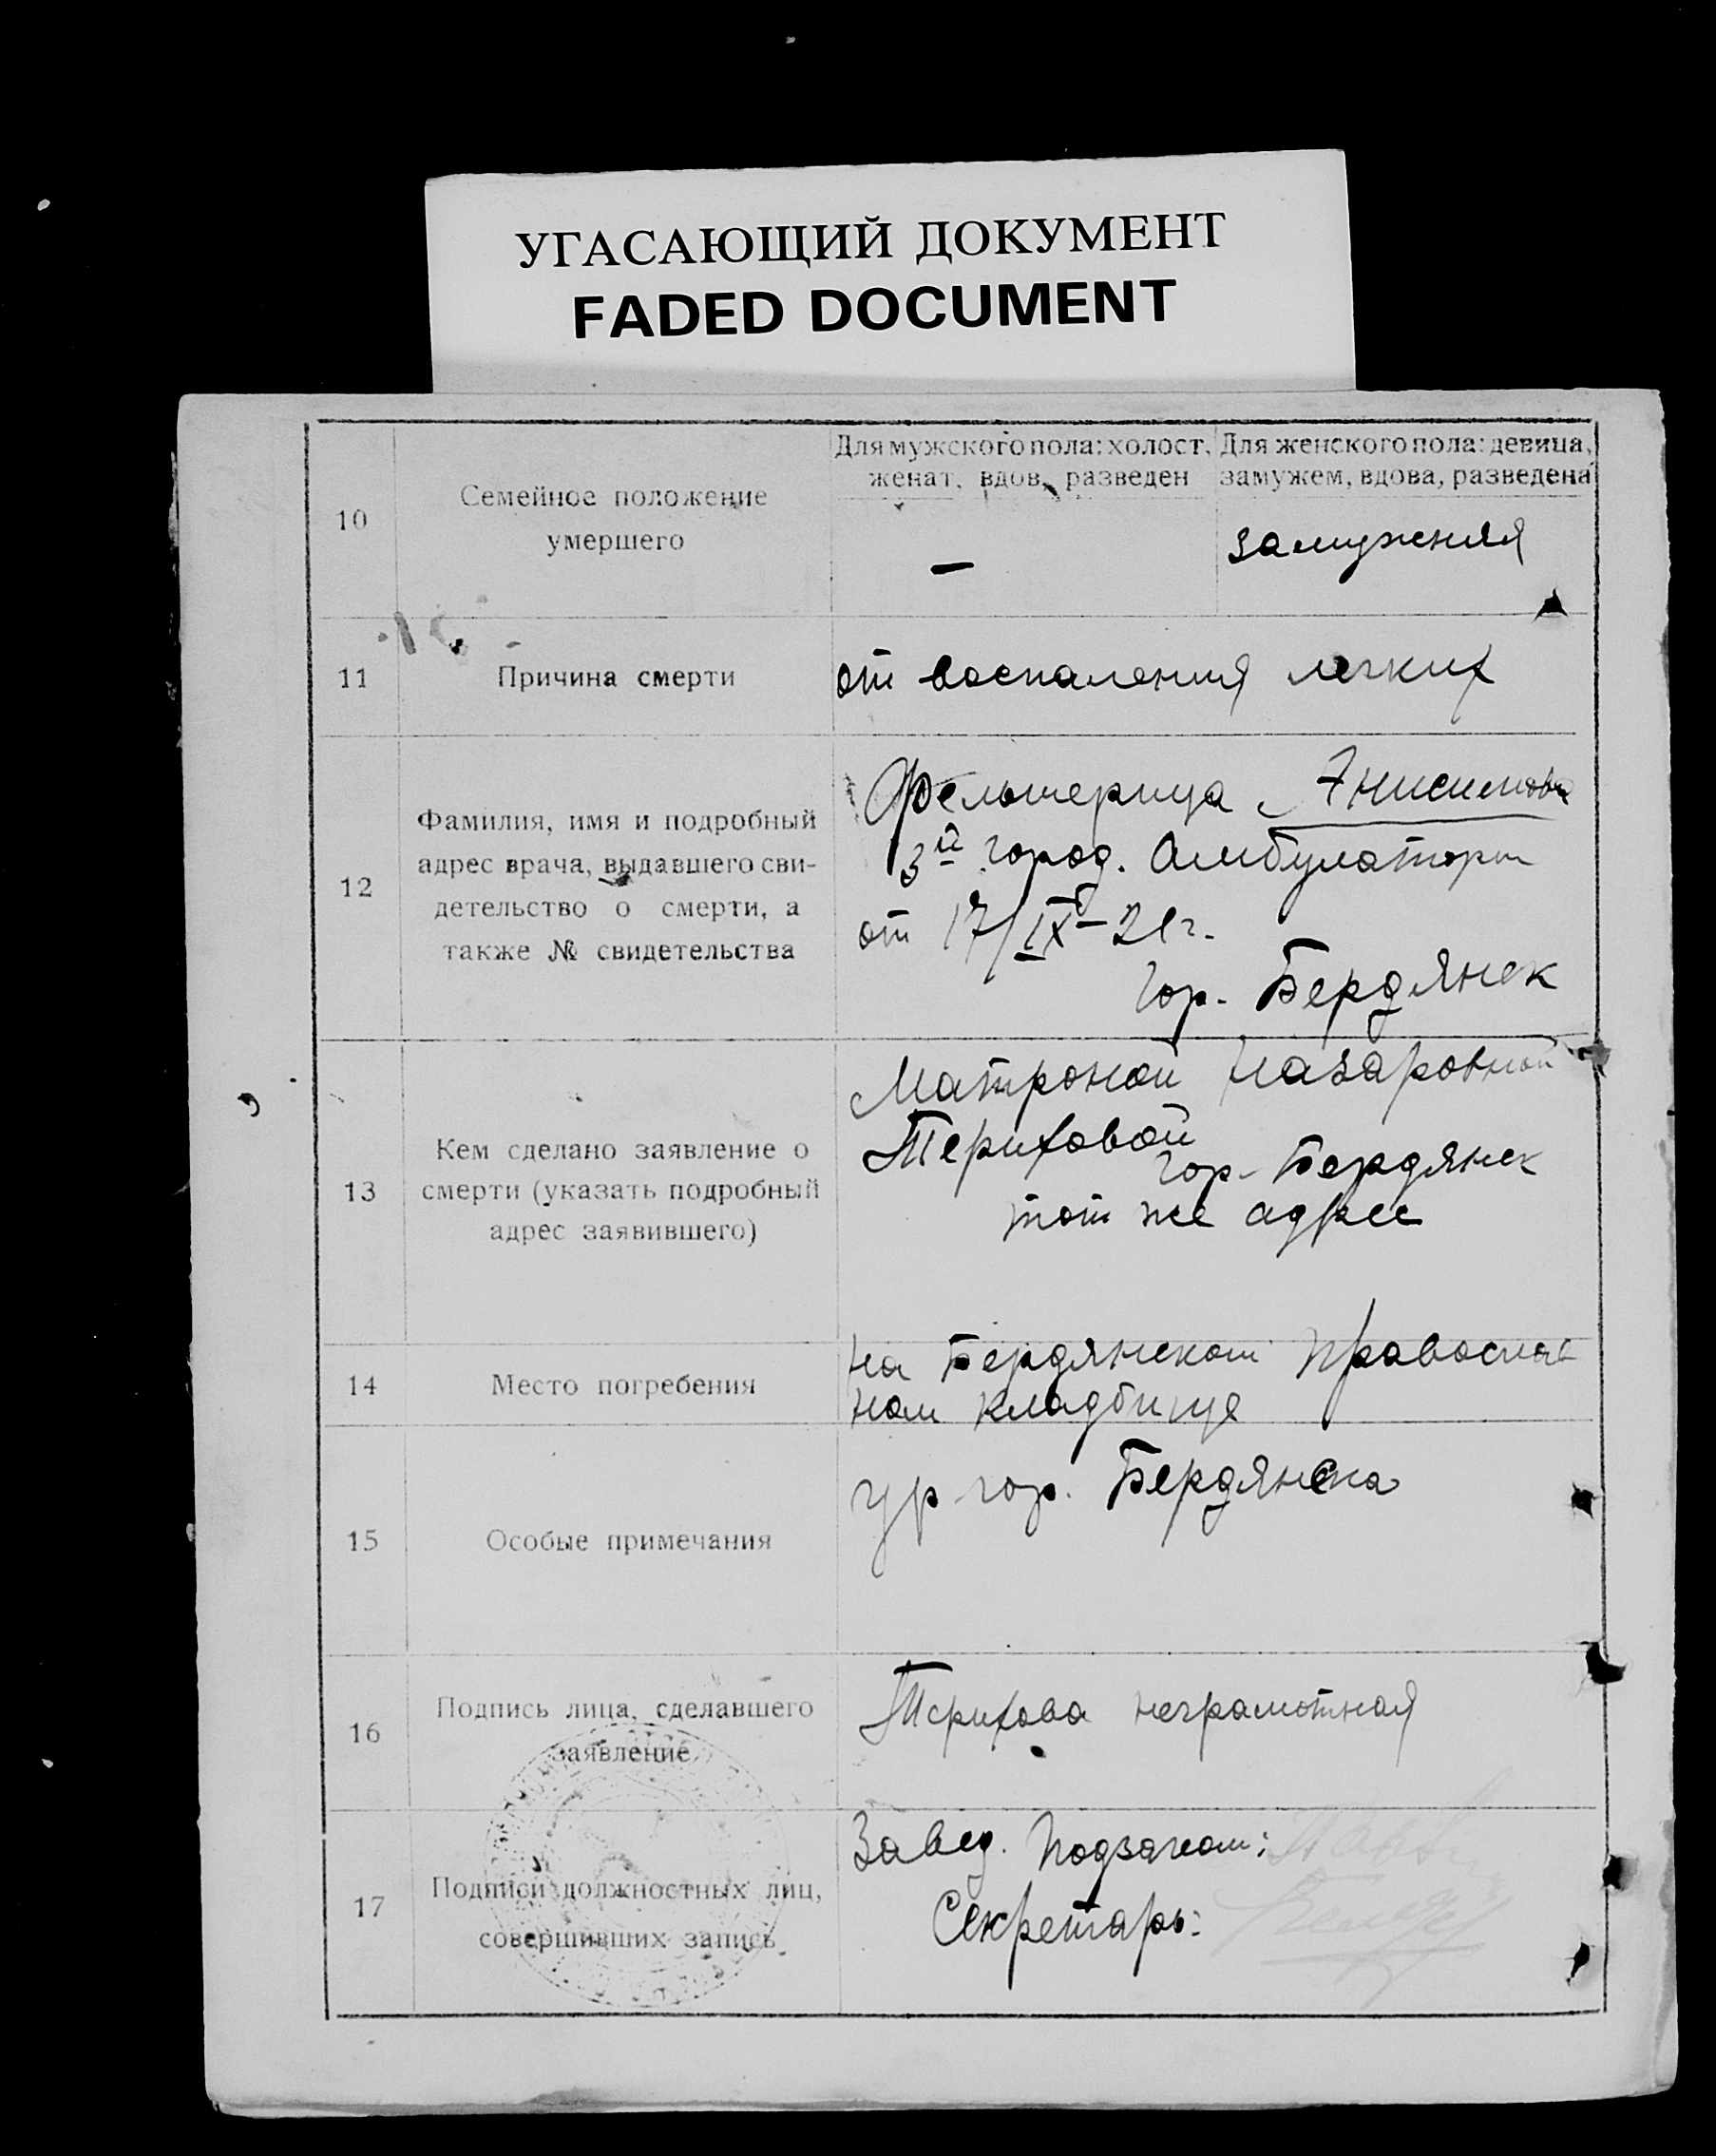 УГАСАЮЩИЙ ДОКУМЕНТ
FADED DOCUMENT
10
Семейное положение
умершего
Для мужского пола: холост,
женат, вдов, разведен
—
Для женского пола: девица,
замужем, вдова, разведена
замужняя
11
Причина смерти
от воспаления легких
12
Фамилия, имя и подробный
адрес врача, выдавшего сви-
детельство о смерти, а
также № свидетельства
Фельшерица Анисимова
3й город. Амбулатории
от 17/IX-21г.
Гор. Бердянск
13
Кем сделано заявление о
смерти (указать подробный
адрес заявившего)
Матроной Назаровной
Териховой
гор. Бердянск
тот же адрес
14
Место погребения
на Бердянском православ
ном кладбище
15
Особые примечания
гр гор. Бердянска
16
Подпись лица, сделавшего
заявление
Терихова неграмотная
17
Подписи должностных лиц,
совершивших запись
Завед. Подзагсом:
Секретарь: